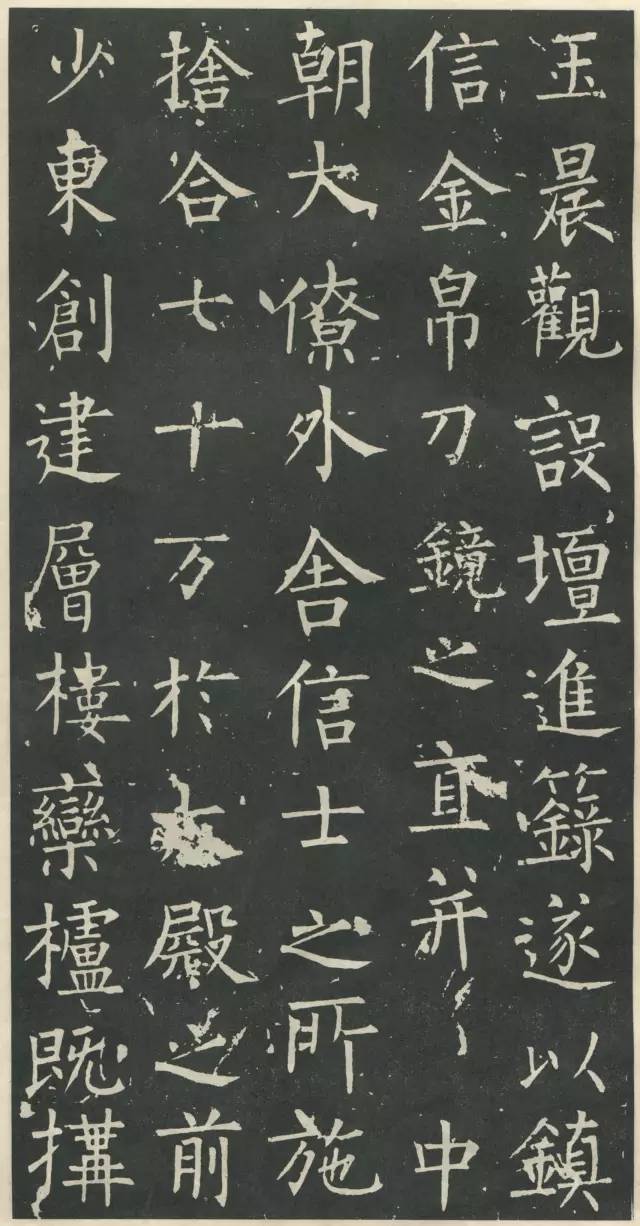 玉晨觀設壇進籙遂以鎮
信金帛刀鏡之直并中
朝大僚外舍信士之所施
捨合七十万於七殿之前
少東創建層樓欒櫨既搆